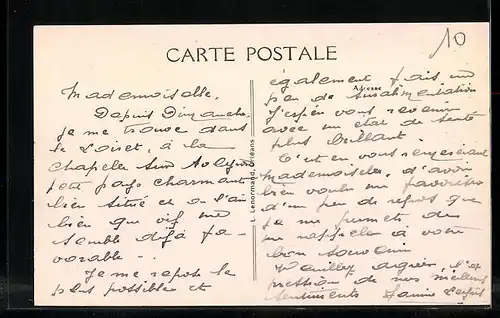 CARTE POSTALE
10
Mademoiselle,
Depuis Dimanche
je me trouve dans
le Loiret, à la
Chapelle sur Aveyron
petit pays charmant
bien situé et où l'air
bien que vif me
semble déjà fa-
vorable -
Je me repose le
plus possible et
Lenormand, Orléans
Adresse
également fais un
peu de suralimentation
J'espère vous revenir
avec un état de santé
plus brillant
C'est en vous remerciant
Mademoiselle, d'avoir
bien voulu me favoriser
d'un peu de repos que
je me permets de
me rappeler à votre
bon souvenir
Veuillez agréer, l'ex
pression de mes meilleurs
sentiments